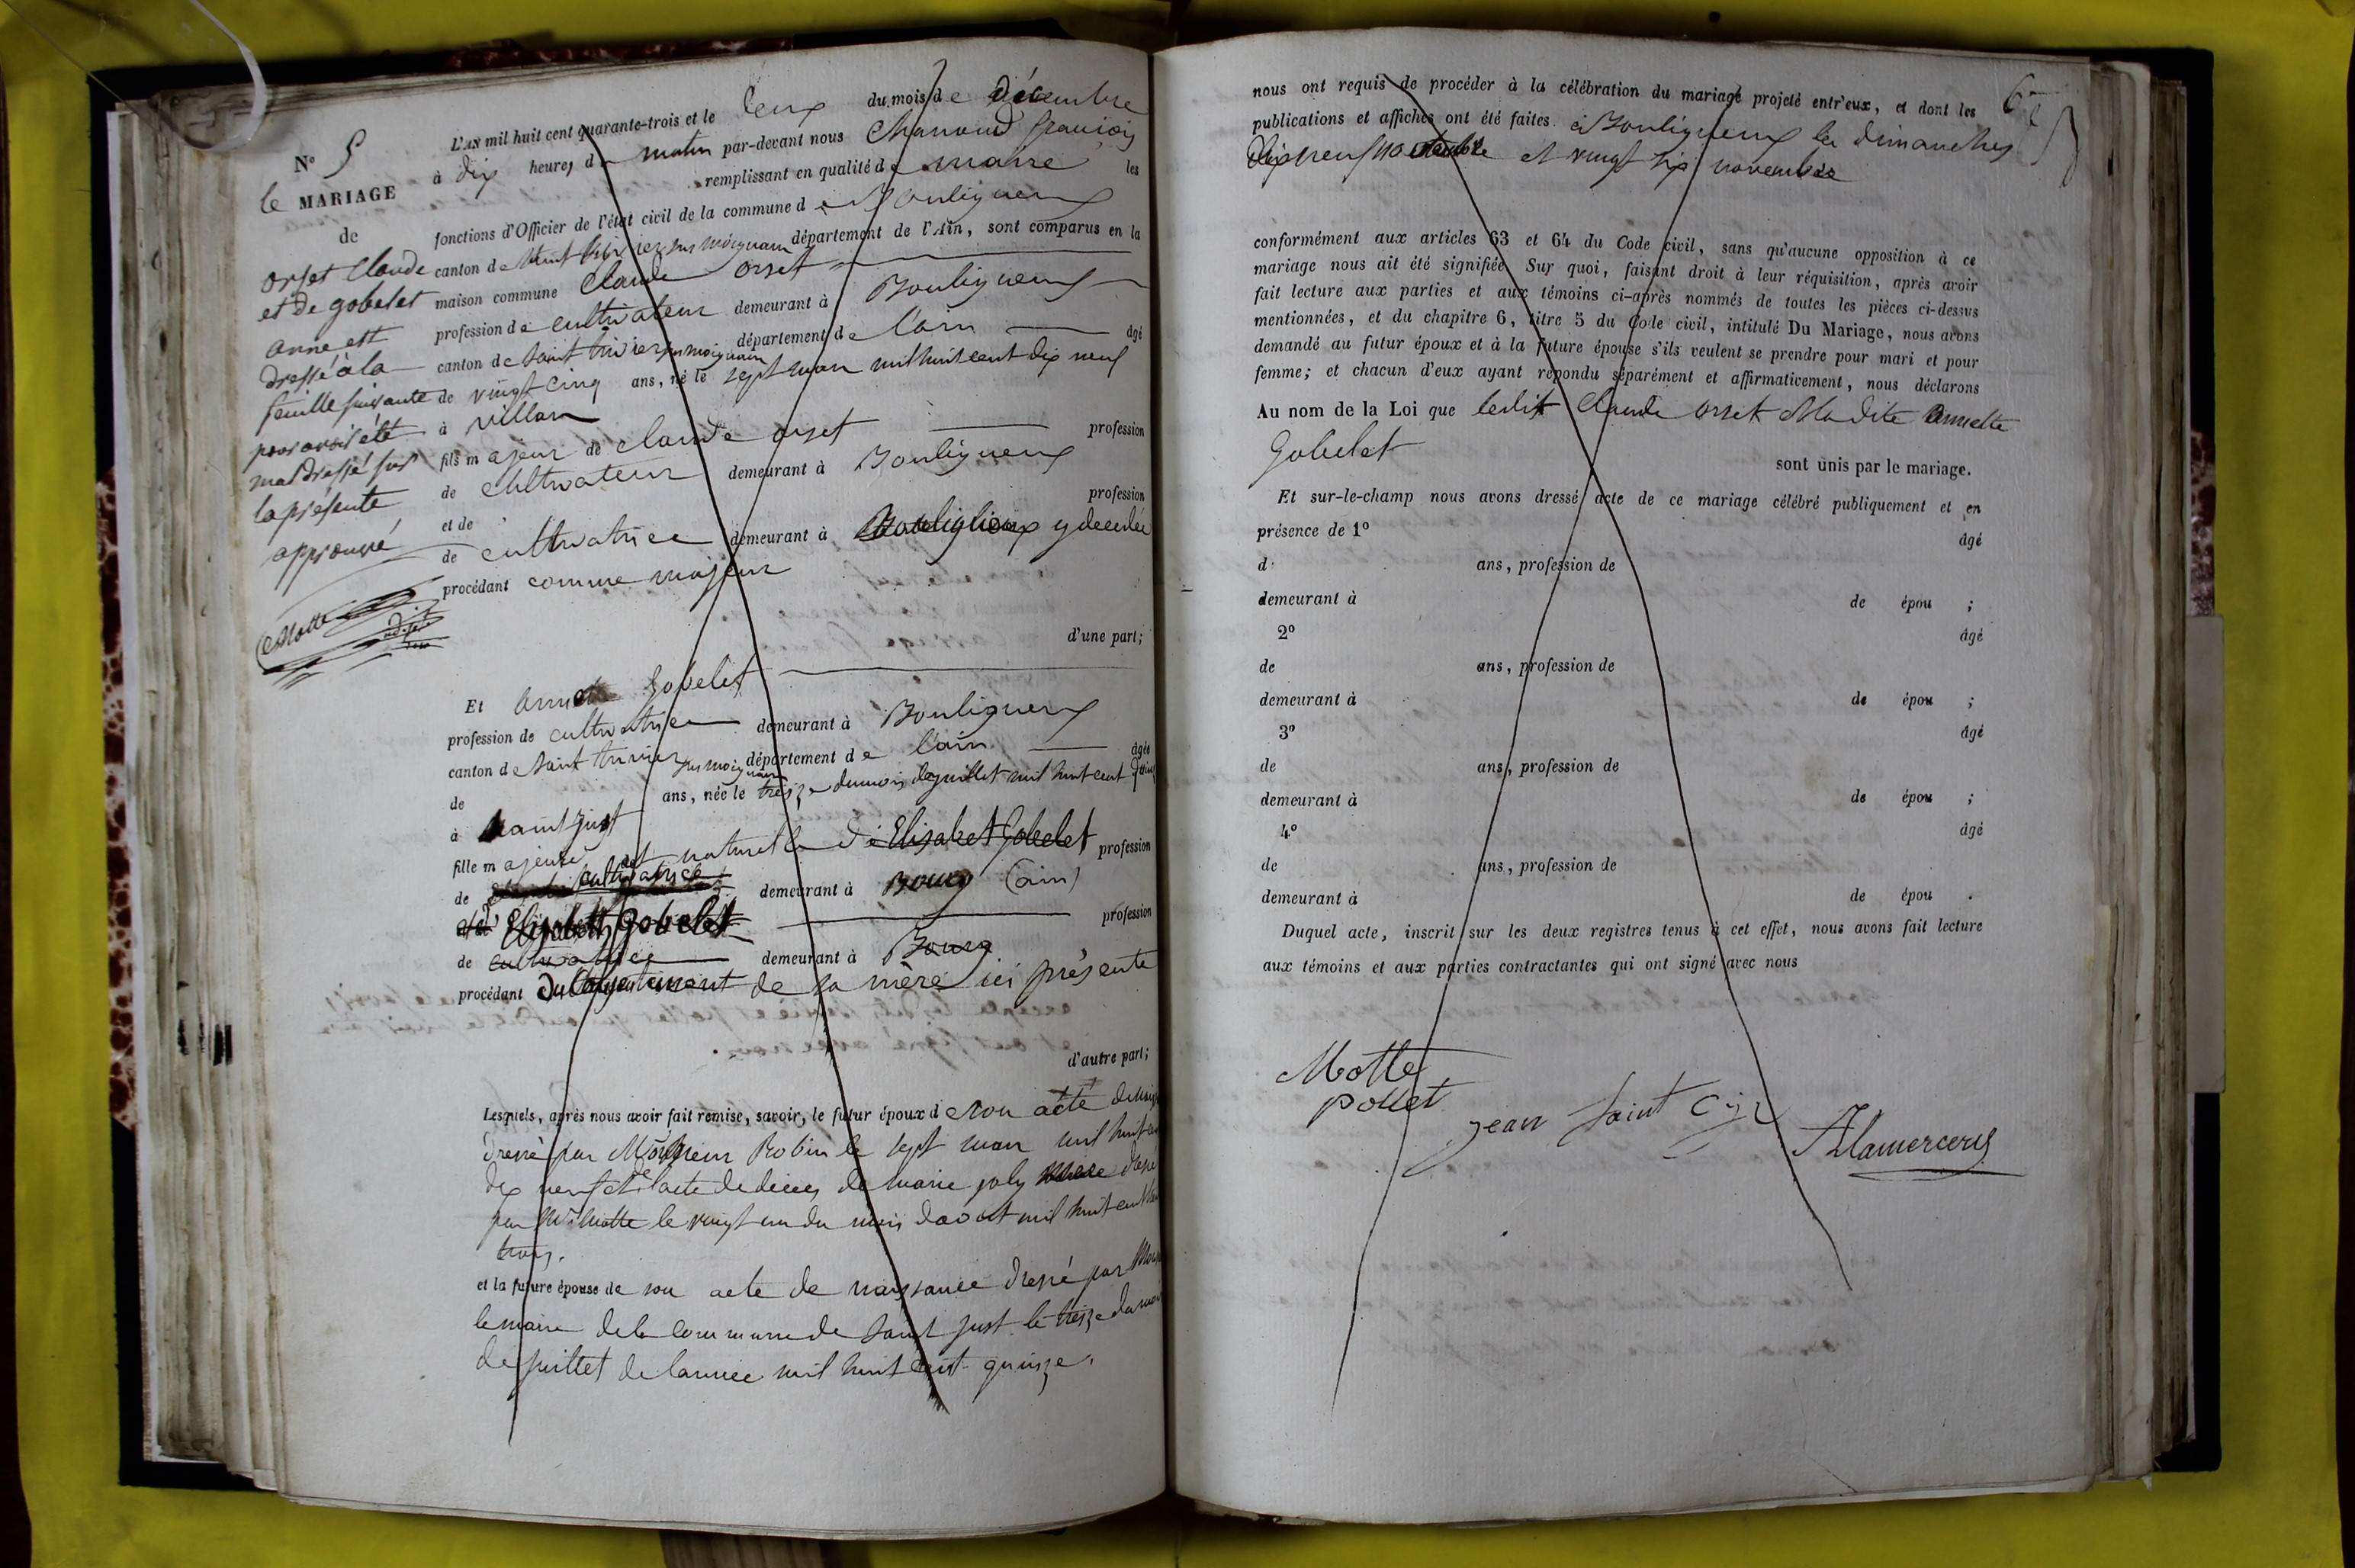 N° 5
le MARIAGE
de
orset Claude
et de gobelet
anne est
dressé à la
feuille suivante
pour avoir été
mal dressé sur
la présente
approuvé
Motte
L'AN mil huit cent quarante-trois et le deux du mois de décembre
à dix heures du matin par-devant nous François
remplissant en qualité de maire les
fonctions d'Officier de l'état civil de la commune d Bouligneux
canton de Saint trivier sur moignans département de l'Ain, sont comparus en la
maison commune Claude orset
profession de cultivateur demeurant à Bouligneux
canton de Saint trivier sur moignans département de l'ain âgé
de vingt cinq ans, né le sept mars mil huit cent dix neuf
à villars
fils majeur de claude orset profession
de cultivateur demeurant à Bouligneux
et de profession
de cultivatrice demeurant à Bouligneux y décédée
procédant comme majeur
d'une part;
Et Annette Gobelet
profession de cultivatrice demeurant à Bouligneux
canton de Saint trivier sur moignans département de l'ain âgée
de ans, née le treize du mois de juillet mil huit cent quinze
à Saint Just
fille majeure et naturelle de Elisabet Gobelet profession
de cultivatrice demeurant à Bourg (ain)
et de Elisabeth Gobelet profession
de cultivatrice demeurant à Bourg
procédant du Consentement de sa mère ici présente
d'autre part;
Lesquels, après nous avoir fait remise, savoir, le futur époux de son acte de
dressé par Monsieur Robin le sept mars mil huit cent
dix neuf et de l'acte de décès de marie joly mère dressé
par Mr Motte le vingt un du mois d'août mil huit cent
trois.
et la future épouse de son acte de naissance dressé par
le maire de la Commune de Saint Just le treize du mois
de juillet de l'année mil huit cent quinze.
nous ont requis de procéder à la célébration du mariage projeté entr'eux, et dont les
publications et affiches ont été faites à Bouligneux les dimanches
dix neuf et vingt six novembre
conformément aux articles 63 et 64 du Code civil, sans qu'aucune opposition à ce
mariage nous ait été signifiée. Sur quoi, faisant droit à leur réquisition, après avoir
fait lecture aux parties et aux témoins ci-après nommés de toutes les pièces ci-dessus
mentionnées, et du chapitre 6, titre 5 du Code civil, intitulé Du Mariage, nous avons
demandé au futur époux et à la future épouse s'ils veulent se prendre pour mari et pour
femme; et chacun d'eux ayant répondu séparément et affirmativement, nous déclarons
Au nom de la Loi que ledit Claude orset et la dite Annette
Gobelet
sont unis par le mariage.
Et sur-le-champ nous avons dressé acte de ce mariage célébré publiquement et en
présence de 1° âgé
d ans, profession de
demeurant à de épou ;
2° âgé
de ans, profession de
demeurant à de épou ;
3° âgé
de ans, profession de
demeurant à de épou ;
4° âgé
de ans, profession de
demeurant à de épou .
Duquel acte, inscrit sur les deux registres tenus à cet effet, nous avons fait lecture
aux témoins et aux parties contractantes qui ont signé avec nous
Motte
pollet
Jean Saint Cyr
Alamercery